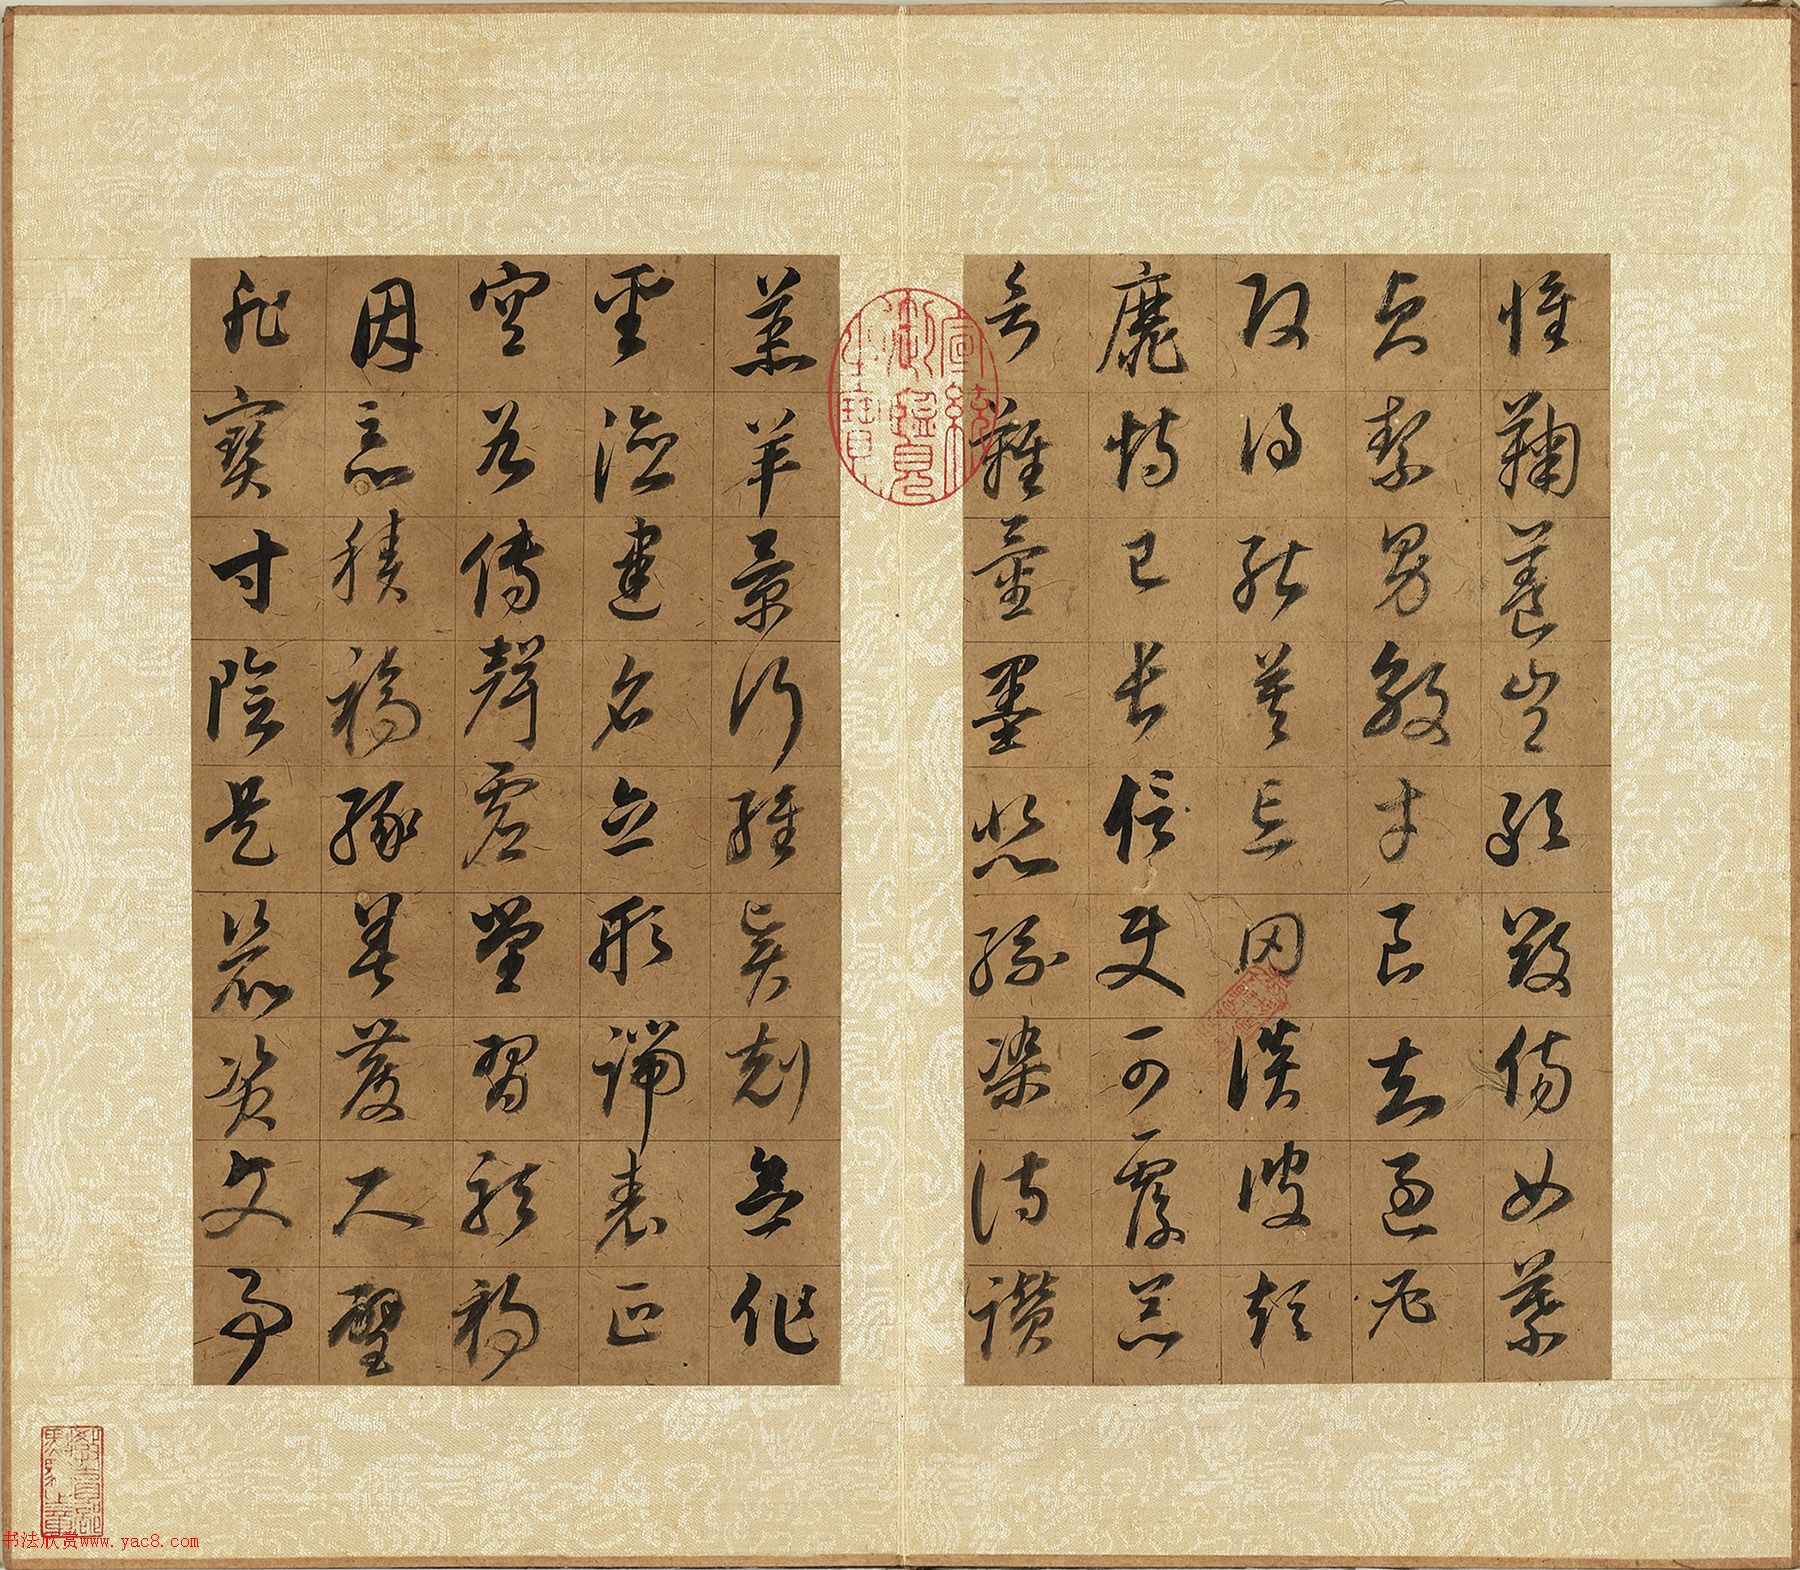 惟鞠養豈敢毀傷女慕
貞絜男效才良知過必
改得能莫忘罔談彼短
靡恃己長信使可覆器
欲難量墨悲絲染詩讚
羔羊景行維賢剋念作
聖德建名立形端表正
空谷傳聲虛堂習聽禍
因惡積福緣善慶尺璧
非寶寸陰是競資父事
宣統御覽之寶
书法欣赏www.yac8.com